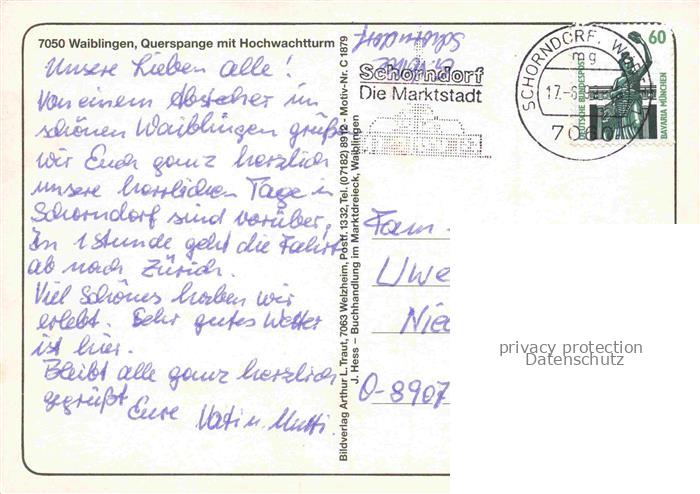 7050 Waiblingen, Querspange mit Hochwachtturm
Unsere Lieben alle!
Von einem Abstecher im
schönen Waiblingen grüßen
wir Euch ganz herzlich
unsere herrlichen Tage in
Schorndorf sind vorüber,
In 1 Stunde geht die Fahrt
ab nach Zürich.
Viel Schönes haben wir
erlebt. Sehr gutes Wetter
ist hier.
Bleibt alle ganz herzlich
gegrüßt
Eure Vati u. Mutti.
Bildverlag Arthur L. Traut, 7063 Welzheim, Postf. 1332, Tel. (07182) 8912 - Motiv-Nr. C 1879
J. Hess – Buchhandlung im Marktdreieck, Waiblingen
Schorndorf
Schorndorf
Die Marktstadt
SCHORNDORF, W
mg
17.-6.
7060
60
DEUTSCHE BUNDESPOST
BAVARIA MÜNCHEN
Fam.
Uwe
Nie
O-8907
privacy protection
Datenschutz